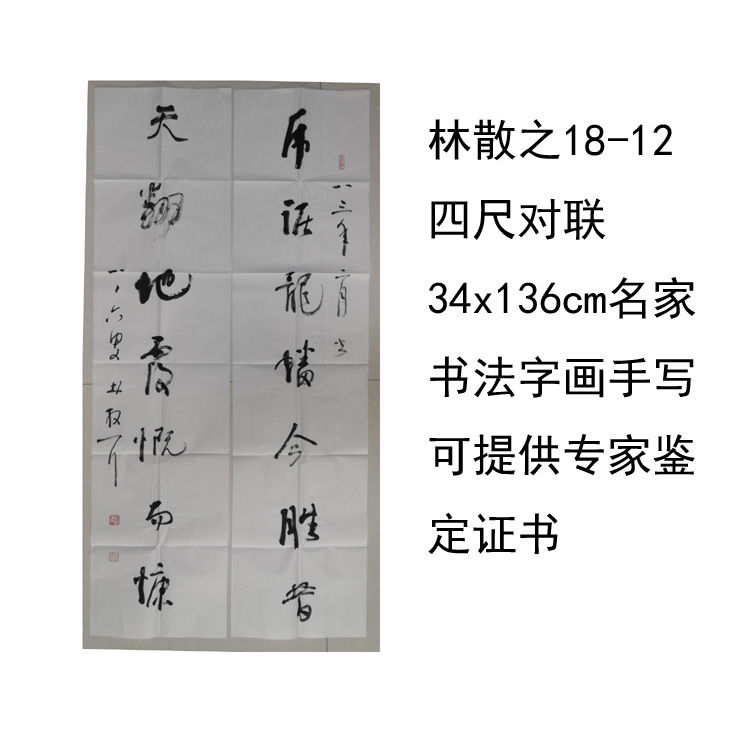 虎踞龍蟠今勝昔
天翻地覆慨而慷
八十六叟林散耳
林散之18-12
四尺对联
34x136cm名家
书法字画手写
可提供专家鉴
定证书